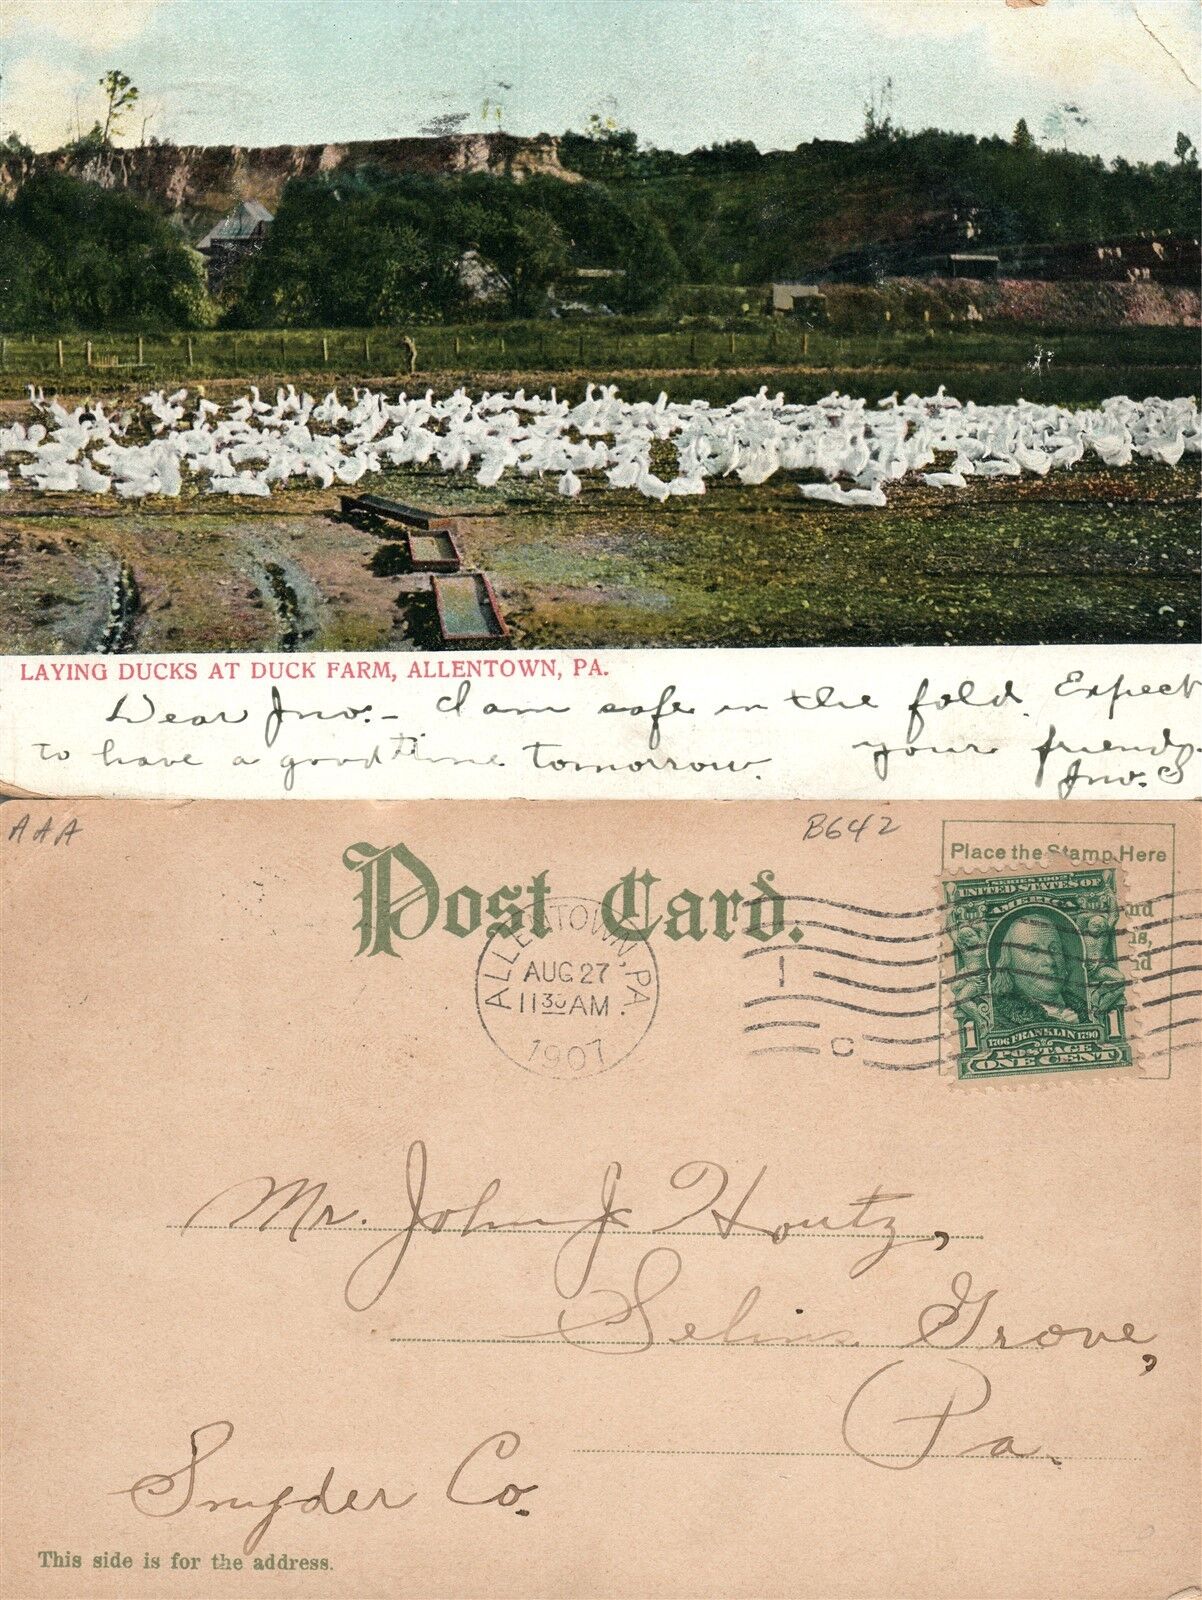 LAYING DUCKS AT DUCK FARM, ALLENTOWN, PA.
Dear Jno. – I am safe in the fold. Expect
to have a good time tomorrow. your friend,
Jno. S
AAA
B642
Post Card.
Place the Stamp Here
nd
is,
nd
SERIES 1902
UNITED STATES OF
AMERICA
1706 FRANKLIN 1790
1 1
POSTAGE
ONE CENT
ALLENTOWN, PA.
AUG 27
11 30 AM
1907
1
C
Mr. John J Houtz,
Selins Grove,
Pa.
Snyder Co.
This side is for the address.